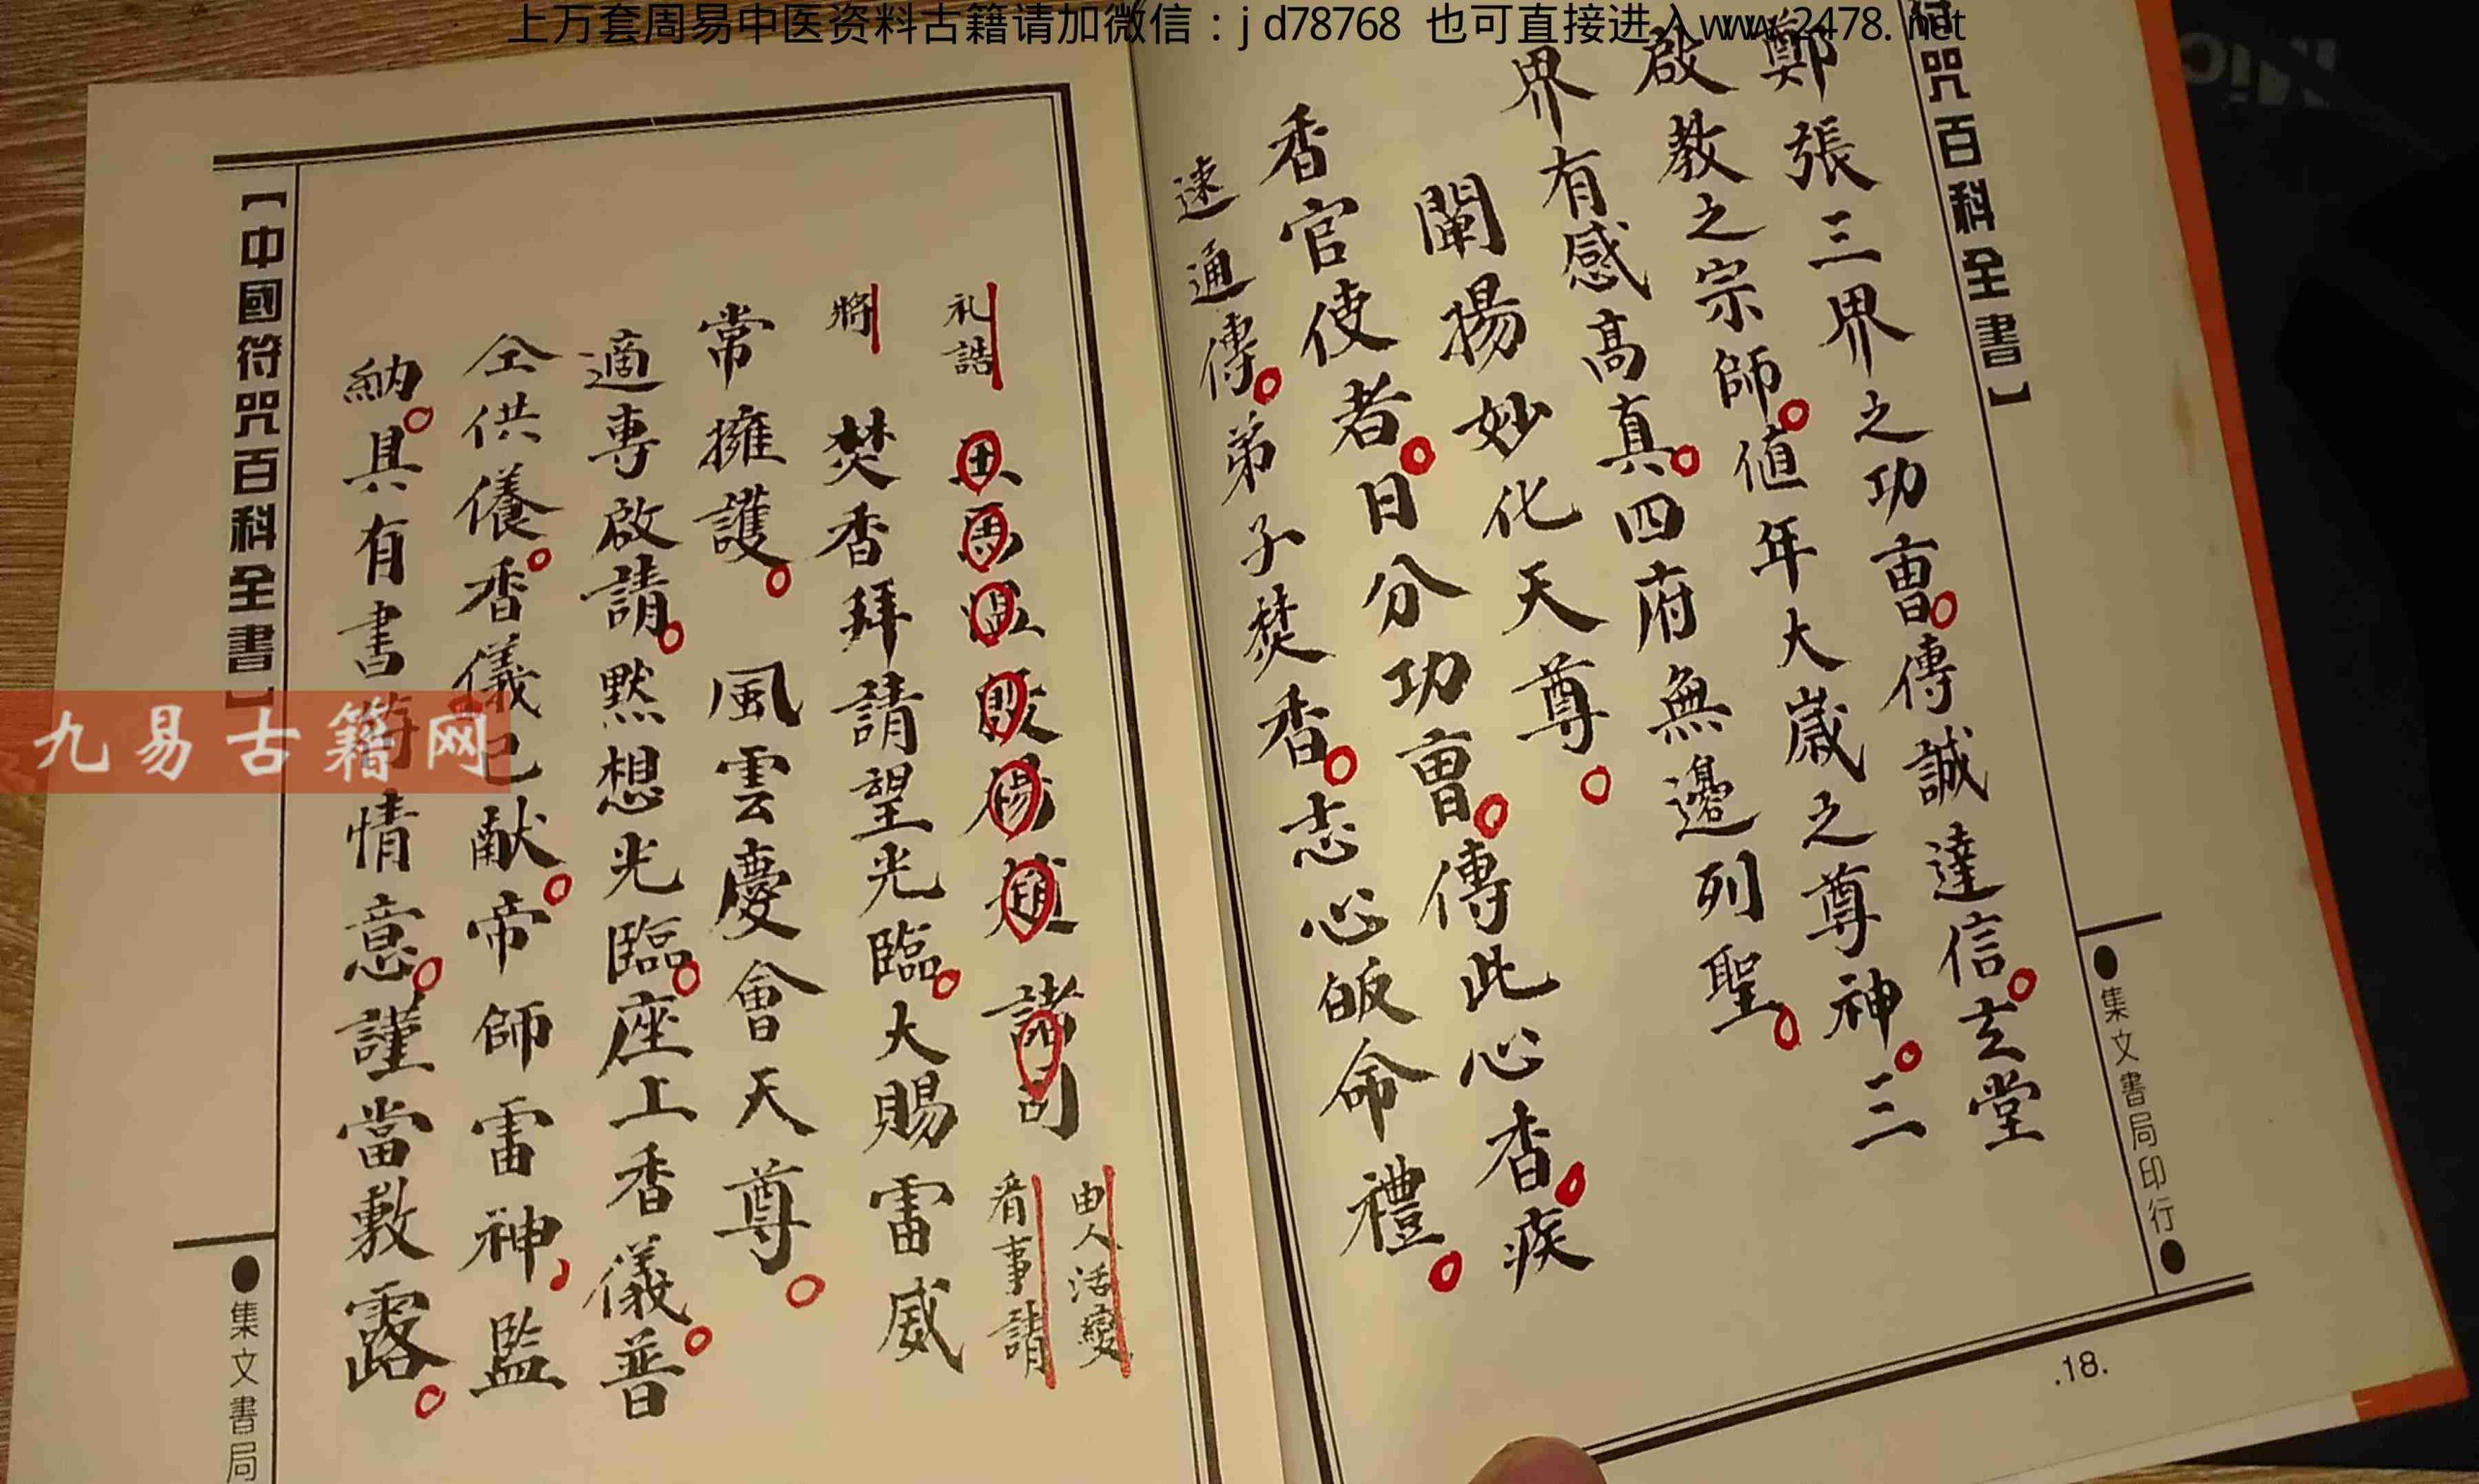 上万套周易中医资料古籍请加微信：jd78768 也可直接进入www.2478.net
符咒百科全書】
●集文書局印行●
鄭張三界之功曹傳誠達信玄堂
啟教之宗師值年大歲之尊神三
界有感高真四府無邊列聖
闡揚妙化天尊
香官使者日分功曹傳此心香疾
速通傳弟子焚香志心皈命禮
.18.
礼誥
王馬溫殷楊趙諸司
由人活變
看事請
將
焚香拜請望光臨大賜雷威
常擁護 風雲慶會天尊
適專啟請默想光臨座上香儀普
仝供養香儀已献帝師雷神監
納具有書符情意謹當敷露
【中國符咒百科全書】
●集文書局
九易古籍网